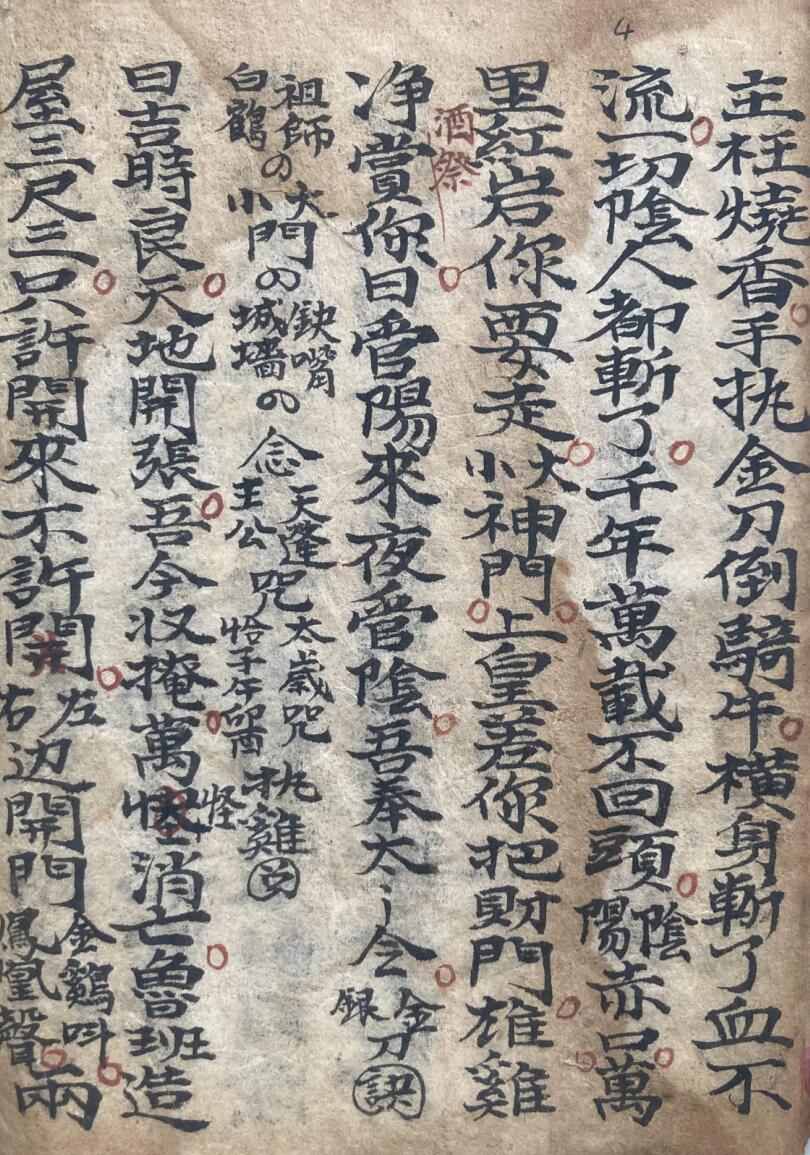 4
主枉燒香手执金刀倒騎牛横身斬了血不
流一切陰人都斬了千年萬載不回頭陰陽赤口萬
里紅岩你要走大小神門上皇差你把財門雄雞
酒祭
净賞你日管陽來夜管陰吾奉太〻令金銀刀訣
祖師白鶴の大小門の鈌嘴城墻の念天蓬王公咒太歲咒恰子午酉执雞
曰吉時良天地開張吾今收掩萬怪消亡魯班造
怪
屋三尺三只許開來不許開左右边開門金鷄叫鳳凰聲兩